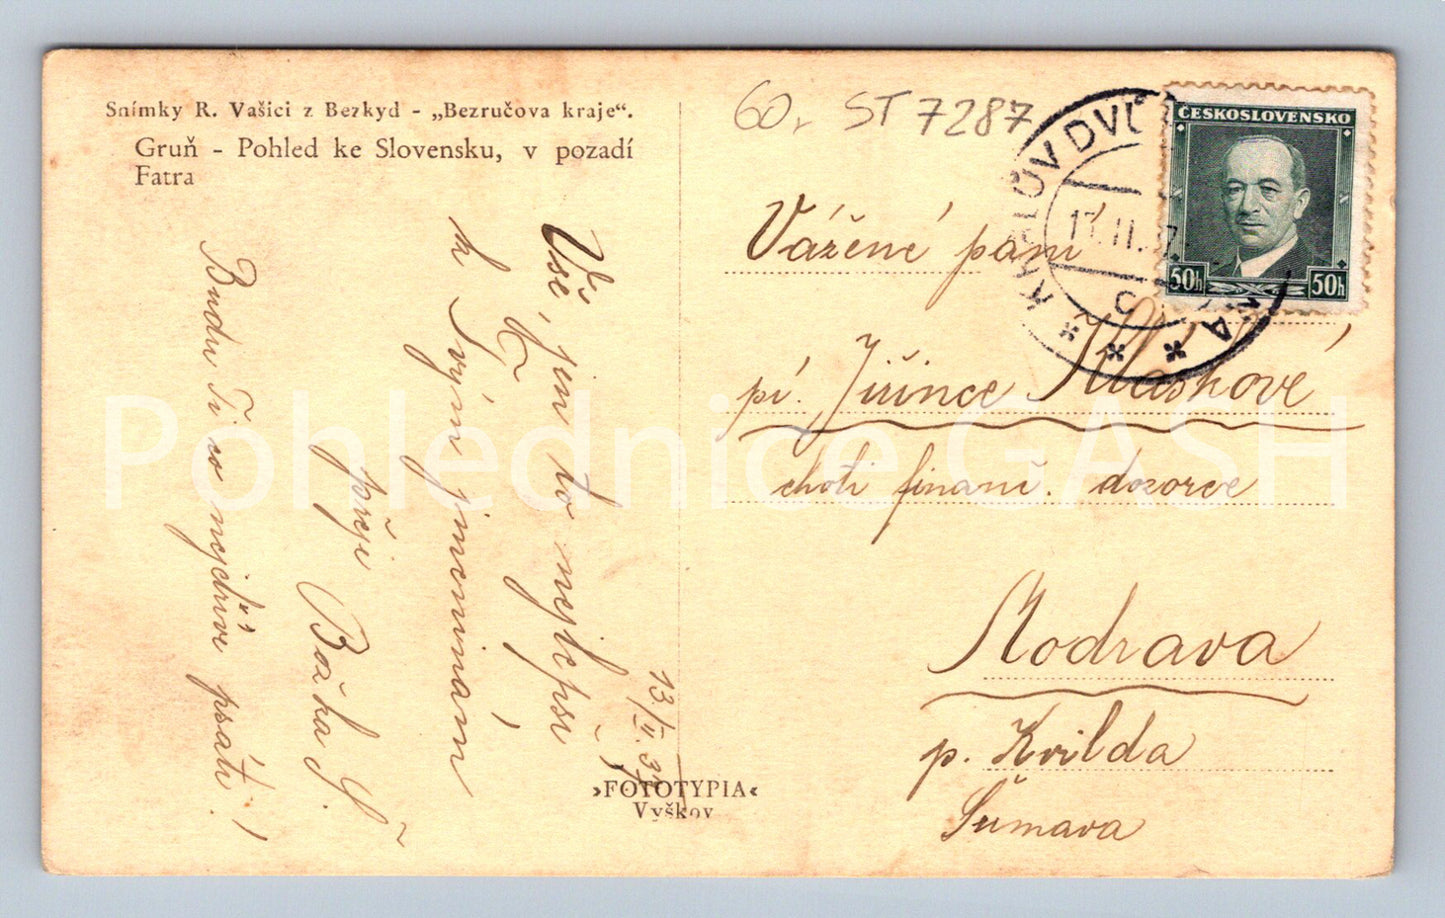 Snímky R. Vašici z Bezkyd - „Bezručova kraje“.
Gruň - Pohled ke Slovensku, v pozadí
Fatra
60,- ST 7287
ČESKOSLOVENSKO
50h 50h
KRÁLŮV DV
Vážené paní
pí. Jiřince Kláskové
choti finanč. dozorce
Modrava
p. Kvilda
Šumava
Vše, jen to nejlepší
k Tvým jmeninám
přeje Božka J.
Budu Ti co nejdříve psáti!
13/II. 37
›FOTOTYPIA‹
Vyškov
Pohlednice GASH